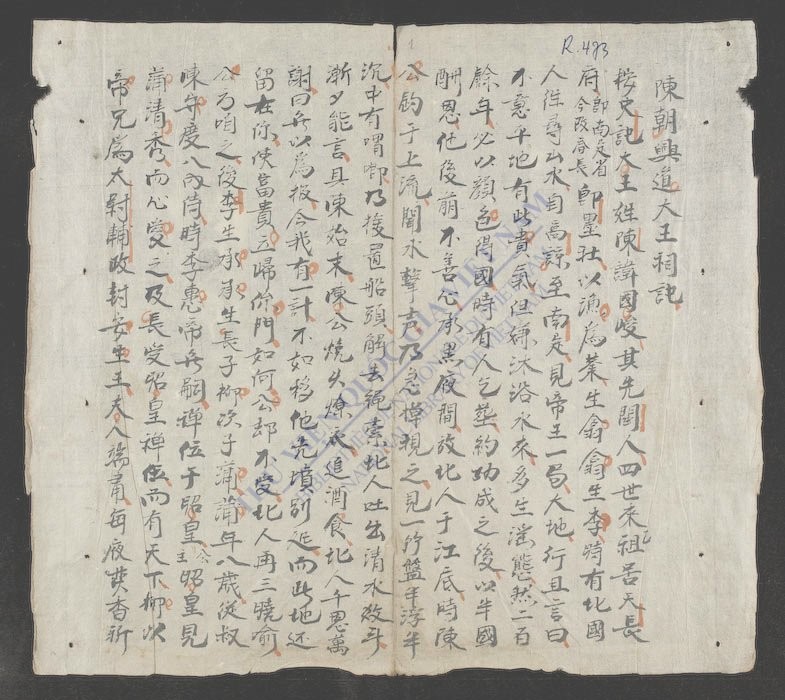 R.483
陳朝興道大王祠記
按史記大王姓陳諱國峻其先閩人四世來祖居天長
府即南定省今改春長即墨社以漁為業生翕翕生李時有北國
人徃尋山水自高諒至南定見帝王一局大地行且言曰
不意平地有此貴氣但嫌沐浴水來多生滛態然二百
餘年必以顔色得國時有人乞葬約功成之後以半國
酬恩他後萠不善心承黑夜間放北人于江底時陳
公釣于上流聞水擊声乃急棹視之見一竹籃半浮半
沉中有喟啣乃接置船頭解去繩索北人吐出清水数斗
漸々能言具陳始末陳公燒火燎衣進酒食北人千恩萬
謝曰無以為报今我有一計不如移他先墳别近而此地还
留在你使富貴並歸伱門如何公却不受北人再三曉喻
公乃咱之後李生承承生長子柳次子蒲蒲年八歳從叔
陳守慶入内侍時李惠帝無嗣禪位于昭皇公主昭皇見
蒲清秀而心愛之及長受昭皇禪位而有天下柳以
帝兄為太尉輔政封安生王夫人端肅每夜焚香祈
THƯ VIỆN QUỐC GIA VIỆT NAM
BIBLIOTHÈQUE NATIONALE DU VIETNAM
NATIONAL LIBRARY OF VIETNAM